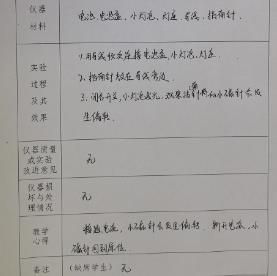 仪器
材料
电池、电池盒、小灯泡、灯座、导线、指南针
实验
过程
及其
效果
1.用导线依次连接电池盒、小灯泡、灯座。
2.指南针放在导线旁边
3.闭合开关,小灯泡发光,小磁针发
生偏转。
仪器质量
或实验
改进意见
无
仪器损
坏与处
理情况
无
教学
心得
接通电流,小磁针会发生偏转。断开电流,小
磁针回到原位。
备注
(缺席学生)无